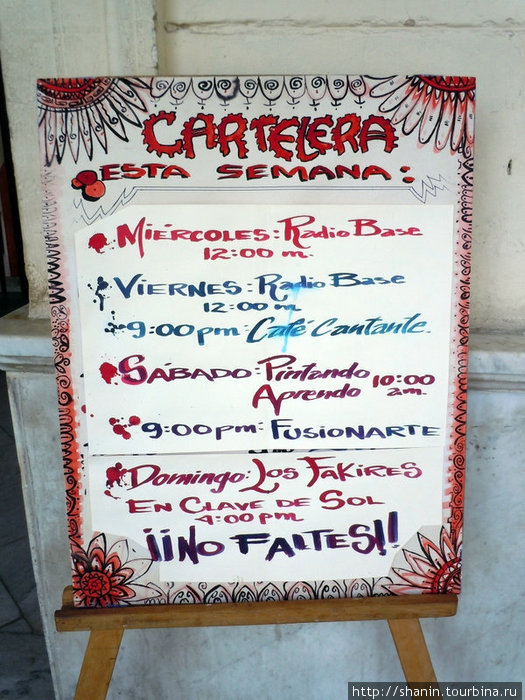 CARTELERA
ESTA SEMANA:
MIÉRCOLES: Radio Base
12:00 m.
VIERNES: Radio Base
12:00 m
9:00 pm: Café Cantante.
SÁBADO: Pintando 10:00
Aprendo a.m.
9:00 pm: FUSIONARTE
Domingo: Los FAKIRES
EN CLAVE DE SOL
4:00 pm
¡¡NO FALTES!!
http://shanin.tourbina.ru